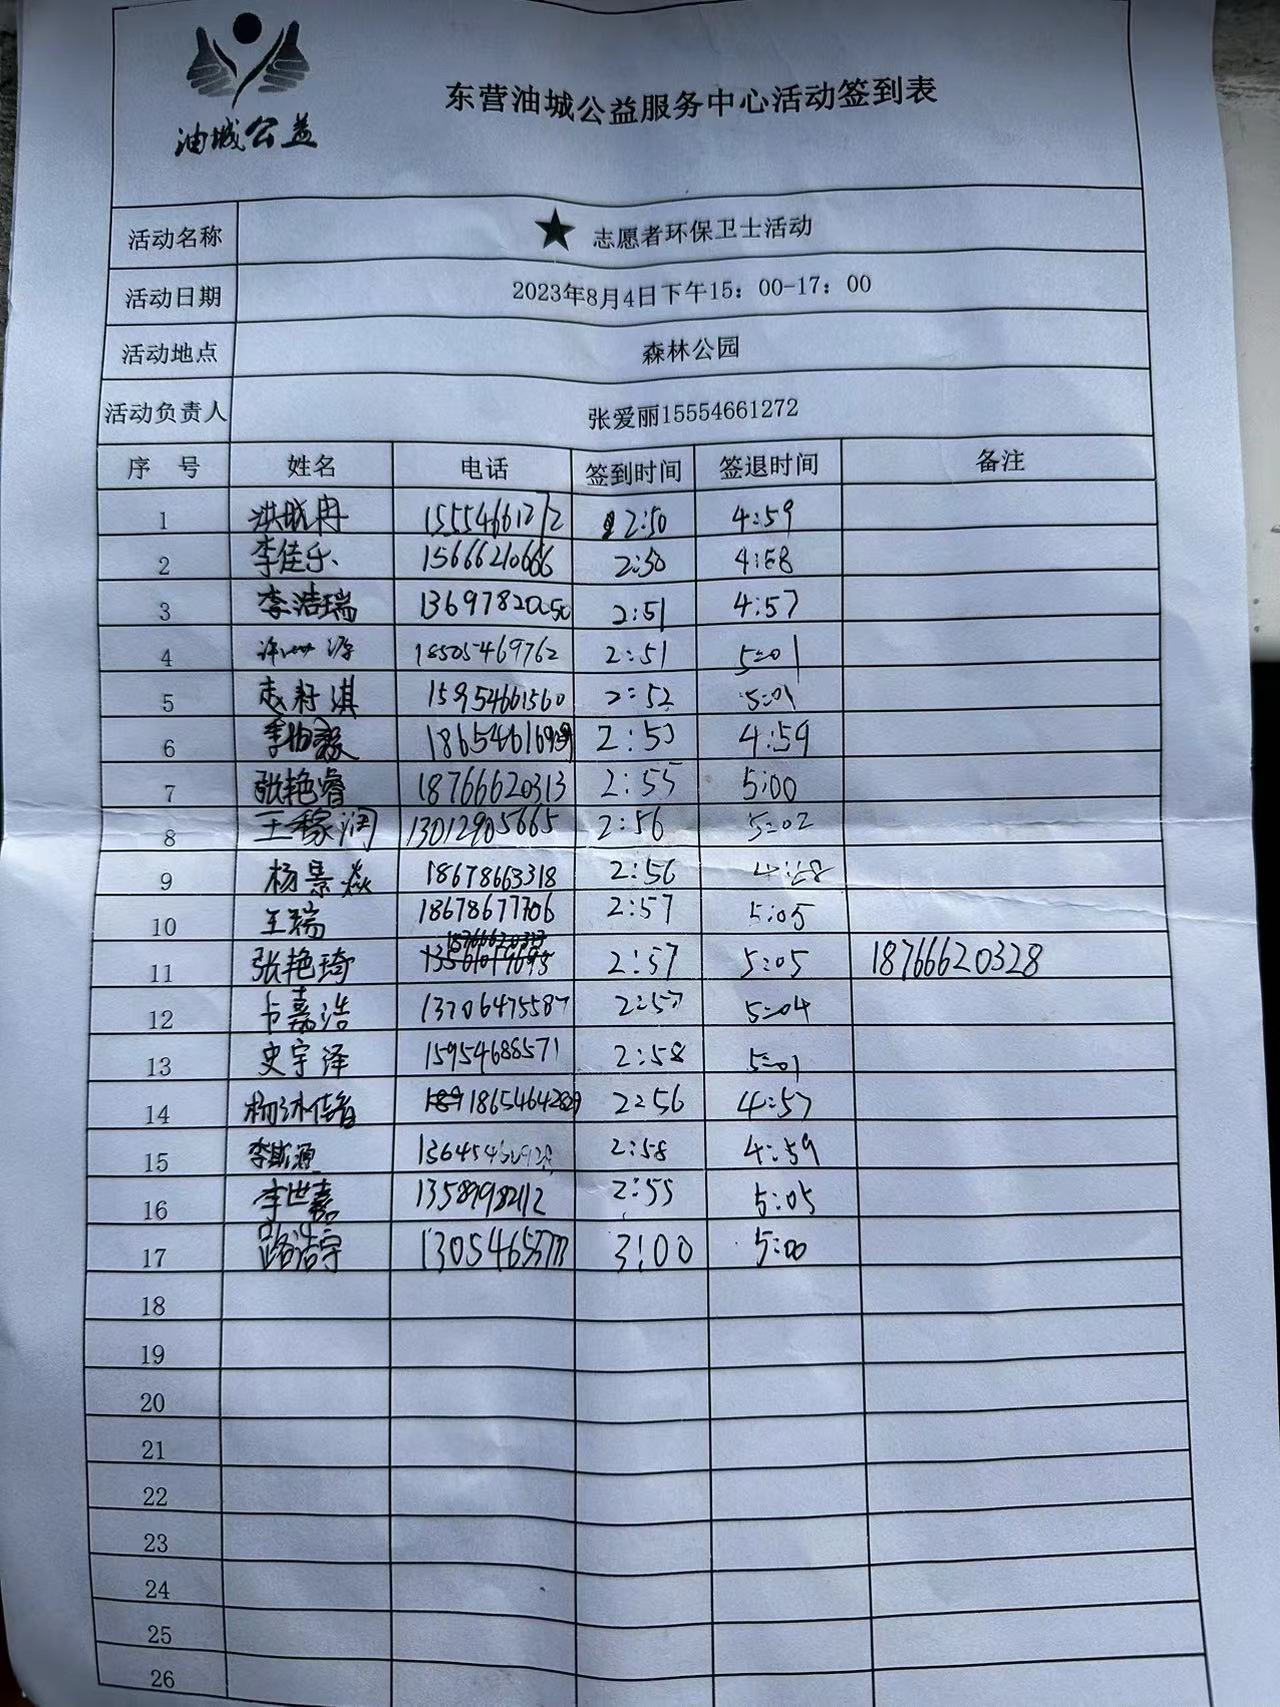 油城公益
东营油城公益服务中心活动签到表
活动名称 ★ 志愿者环保卫士活动
活动日期 2023年8月4日下午15：00-17：00
活动地点 森林公园
活动负责人 张爱丽15554661272
序 号 姓名 电话 签到时间 签退时间 备注
1 洪晓冉 15554661272 2:50 4:59
2 李佳乐 15666210666 2:50 4:58
3 李浩瑞 13697820050 2:51 4:57
4 18505469762 2:51 5:01
5 15954661560 2:52 5:01
6 2:53 4:59
7 张艳睿 18766620313 2:55 5:00
8 王稼润 13012905665 2:56 5:02
9 杨景焱 18678663318 2:56 4:58
10 王瑞 18678677706 2:57 5:05
11 张艳琦 2:57 5:05 18766620328
12 卞嘉浩 13706475587 2:57 5:04
13 史宇泽 15954688571 2:58 5:01
14 2:56 4:57
15 李斌源 2:58 4:59
16 李世嘉 13589982112 2:55 5:05
17 路浩宇 3:00 5:00
18
19
20
21
22
23
24
25
26